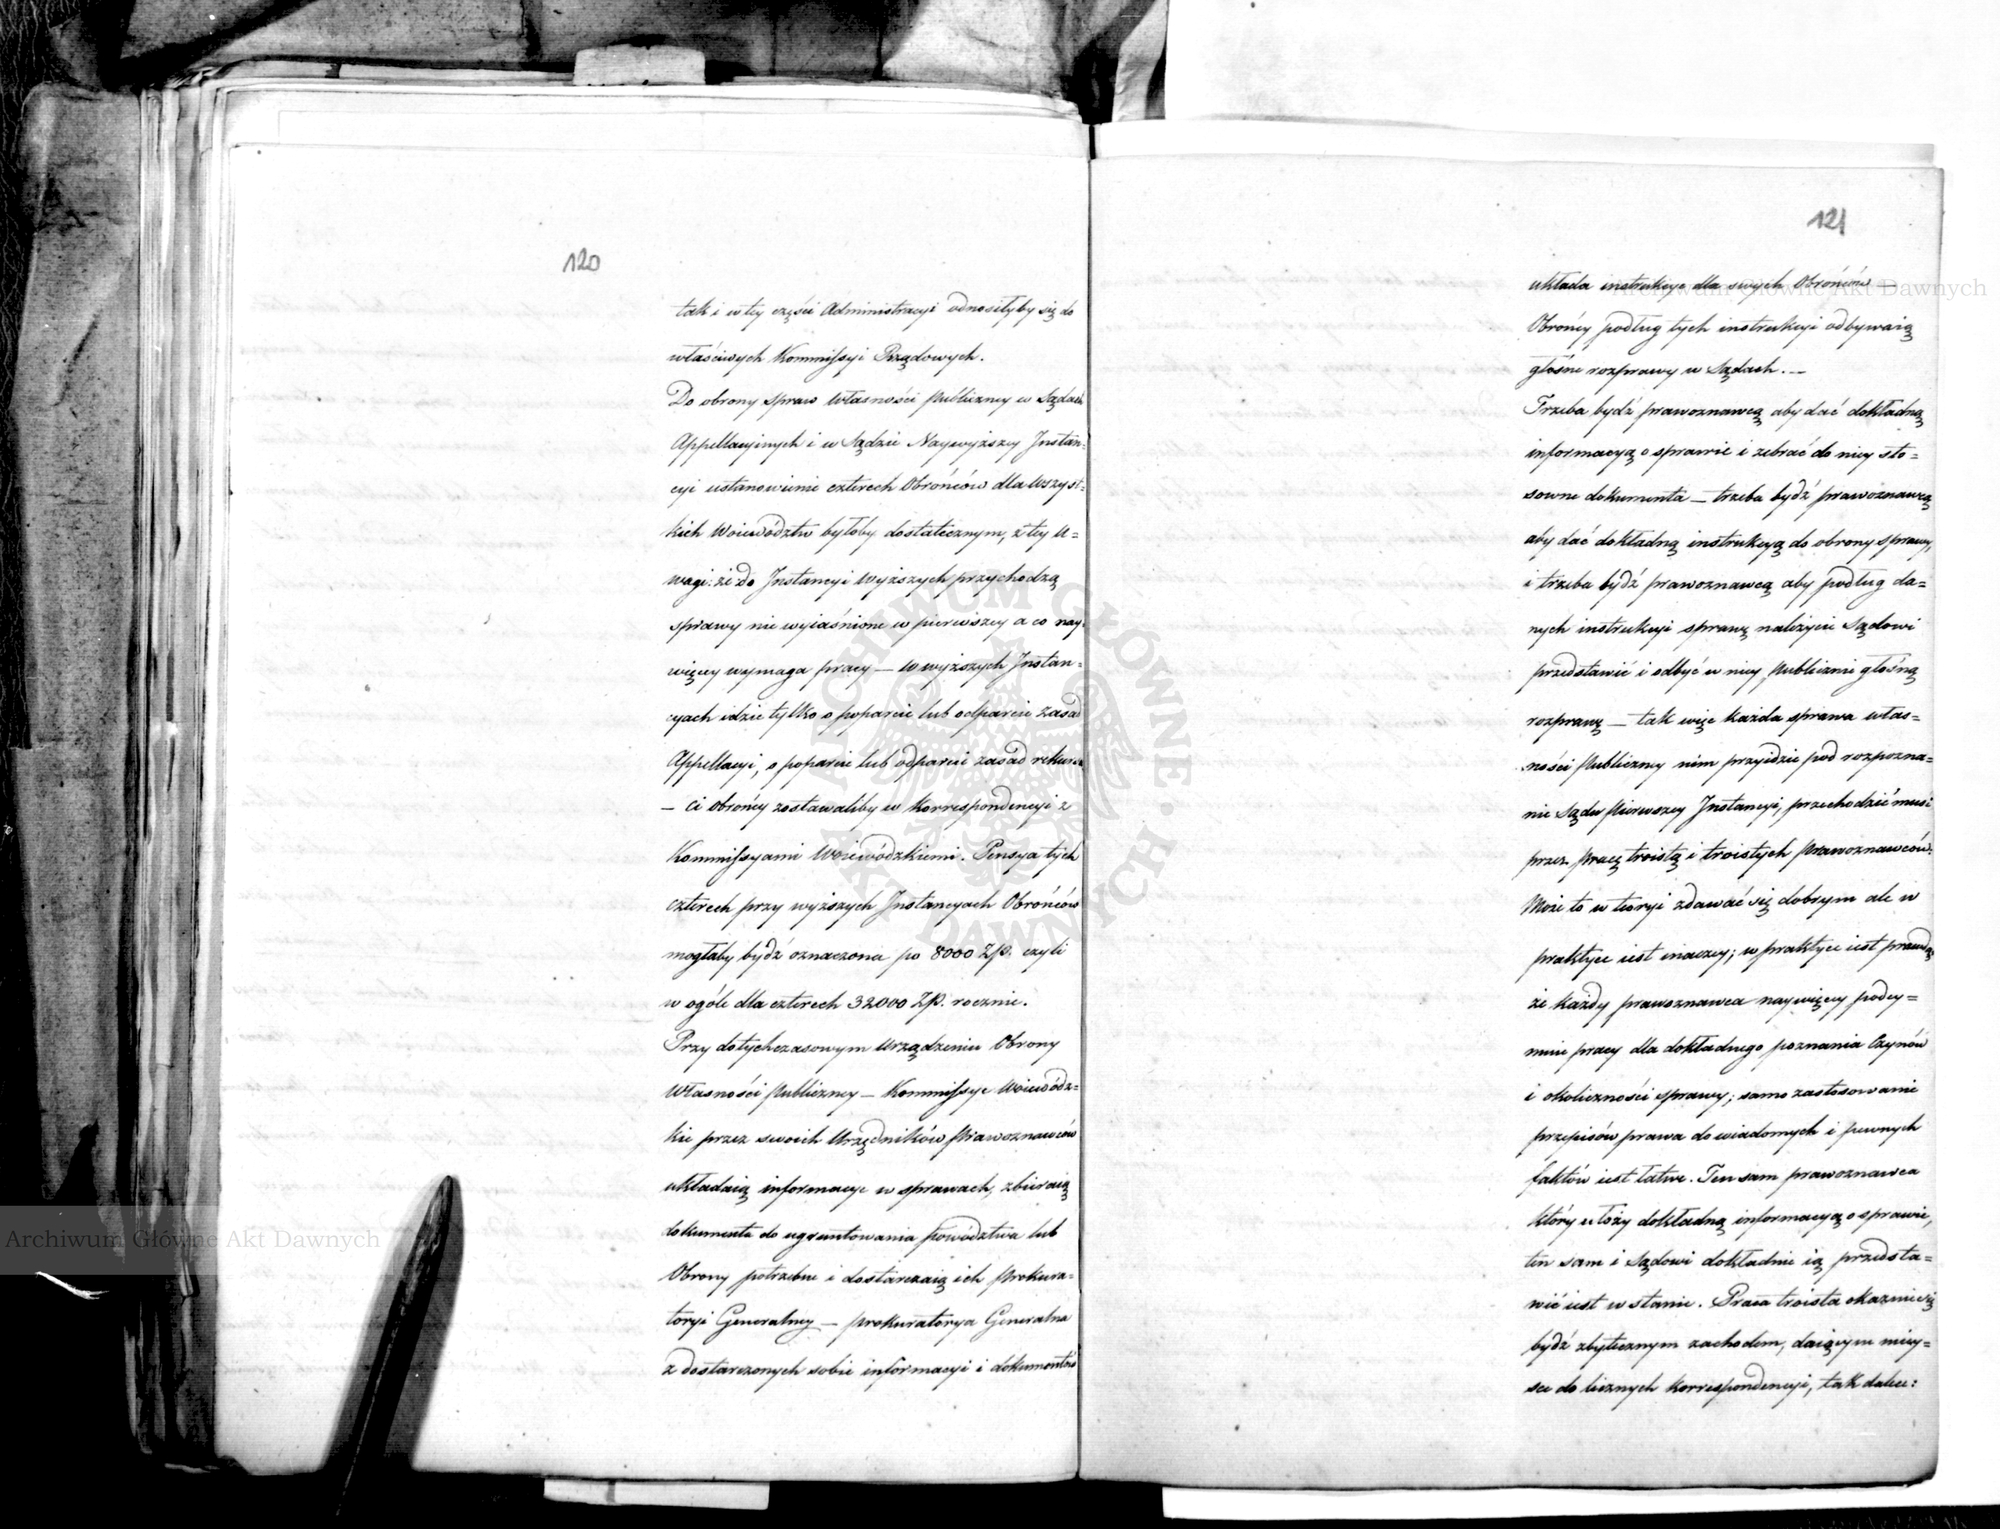 120
tak i w tey części Administracyi odnosiłyby się do
właściwych Kommissyi Rządowych.
Do obrony spraw Własności Publiczney w Sądach
Appellacyinych i w Sądzie Naywyższey Instan-
cyi ustanowienie czterech Obrońców dla wszyst-
kich Woiewództw byłoby dostatecznym, z tey u-
wagi: że do Instancyi Wyższych przychodzą
sprawy nie wyiaśnione w pierwszey a co nay-
więcey wymaga pracy — w wyższych Instan-
cyach idzie tylko o poparcie lub odparcie zasad
Appellacyi, o poparcie lub odparcie zasad rekursu
— Ci obrońcy zostawaliby w Korrespondencyi z
Kommissyami Woiewódzkiemi. Pensya tych
czterech przy wyższych Instancyach Obrońców
mogłaby bydź oznaczona po 8000 Zp. czyli
w ogóle dla czterech 32000 Zp. rocznie.
Przy dotychczasowym Urządzeniu Obrony
Własności Publiczney — Kommissye Woiewódz-
kie przez swoich Urzędników Prawoznawców
układaią informacye w sprawach, zbieraią
dokumenta do ugruntowania powództwa lub
Obrony potrzebne i dostarczaią ich Prokura-
toryi Generalney — prokuratorya Generalna
z dostarczonych sobie informacyi i dokumentów
121
układa instrukcye dla swych Obrońców —
Obrońcy podług tych instrukcyi odbywaią
głośne rozprawy w Sądach. —
Trzeba bydź prawoznawcą aby dać dokładną
informacyą o sprawie i zebrać do niey sto-
sowne dokumenta — trzeba bydź prawoznawcą
aby dać dokładną instrukcyą do obrony sprawy,
i trzeba bydź prawoznawcą aby podług da-
nych instrukcyi sprawę należycie Sądowi
przedstawić i odbyć w niey publicznie głośną
rozprawę — tak więc każda sprawa włas-
ności Publiczney nim przyidzie pod rozpozna-
nie Sądu Pierwszey Instancyi, przechodzić musi
przez pracę troistą i troistych Prawoznawców.
Może to w teoryi zdawać się dobrym ale w
praktyce iest inaczey; w praktyce iest prawdą
że każdy prawoznawca naywięcey podey-
mie pracy dla dokładnego poznania Czynów
i okoliczności sprawy; samo zastosowanie
przepisów prawa do wiadomych i pewnych
faktów iest łatwe. Ten sam prawoznawca
który ułoży dokładną informacyą o sprawie,
ten sam i Sądowi dokładnie ią przedsta-
wić iest w stanie. Praca troista okazuie się
bydź zbytecznym zachodem, daiącym miey-
sce do licznych korrespondencyi, tak dalece:
Archiwum Główne Akt Dawnych
Archiwum Główne Akt Dawnych
ARCHIWUM GŁÓWNE · AKT DAWNYCH ·